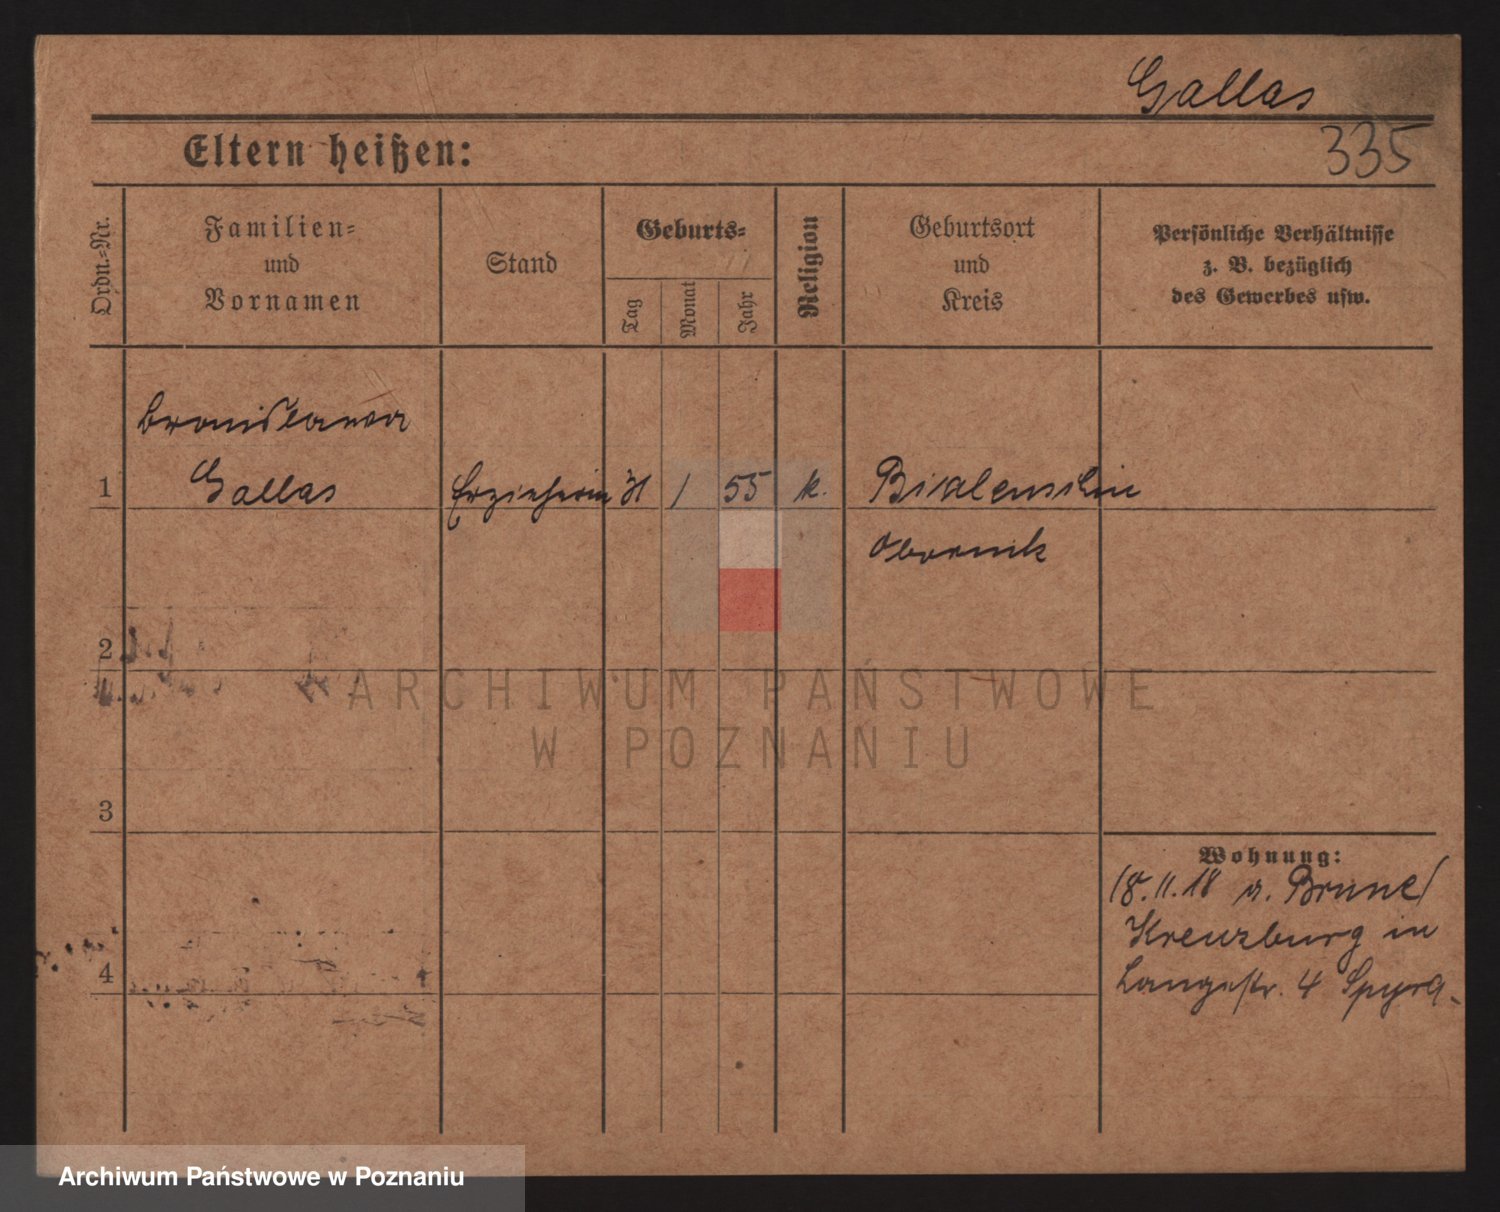 Gallas
335
Eltern heißen:
Ordn.-Nr.
Familien=
und
Vornamen
Stand
Geburts=
Tag
Monat
Jahr
Religion
Geburtsort
und
Kreis
Persönliche Verhältnisse
z. B. bezüglich
des Gewerbes usw.
Bronislawa
1 Gallas Erzieherin 31 1 55 k.
Obornik
2
3
4
Wohnung:
18.11.18 n.
Kreuzburg in
Langestr. 4
ARCHIWUM PAŃSTWOWE
W POZNANIU
Archiwum Państwowe w Poznaniu